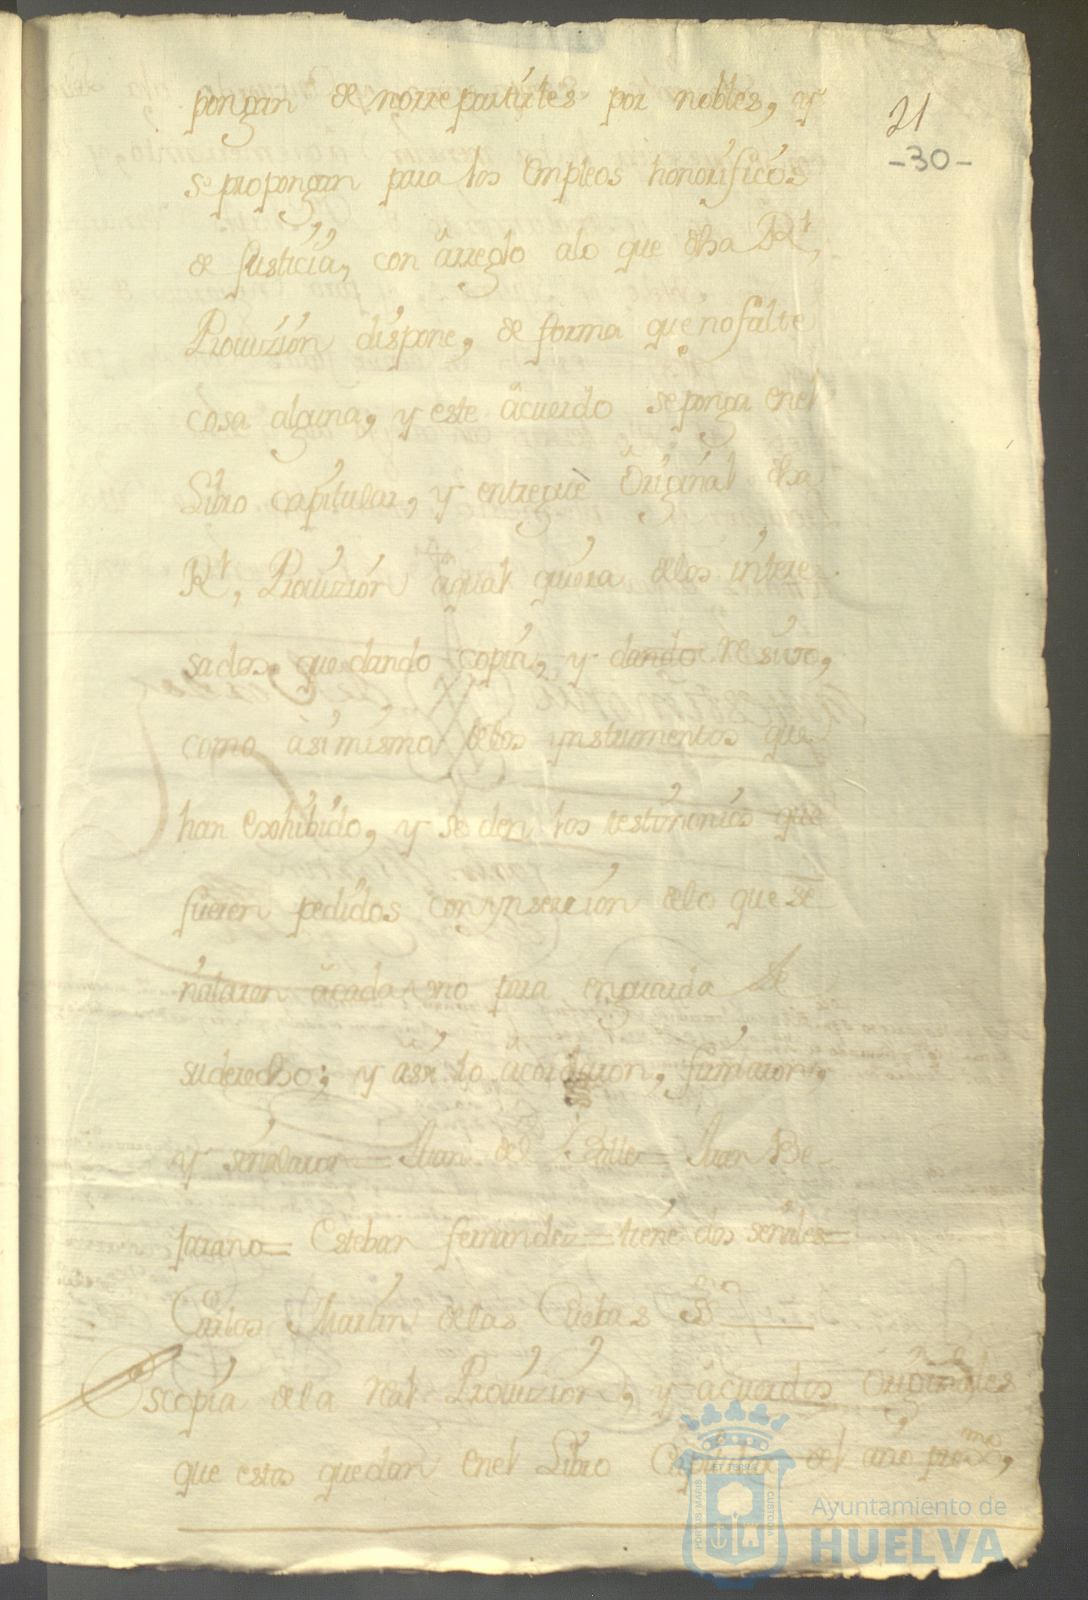 pongan de no rrepartirles por nobles, y
21
-30-
se propongan para los Empleos honorificos
de Justicia, con arreglo alo que dha Rl,
Provizión dispone, de forma que no falte
cosa alguna, y este acuerdo se ponga enel
Libro capitular, y entregue Original dha
Rl, Provizión aqual quiera delos intere
sados, quedando copia, y dando resivo,
como asi mismo delos ynstrumentos que
han exshibido, y se den los testimonios que
fueren pedidos con ynsercion delo que se
ñalaren acada uno para enguarda de
su derecho; y asi lo acordaron, firmaron,
y señalaron = Juan del Valle = Juan Be-
jarano = Esteban fernandez = tiene dos señales =
Carlos Martin delas Cuebas
Es copia dela real Provizión, y acuerdos Originales
que estos quedan enel Libro Capitular del año proxmo,
PORTUS MARIS ET TERRE CUSTODIA
Ayuntamiento de
HUELVA